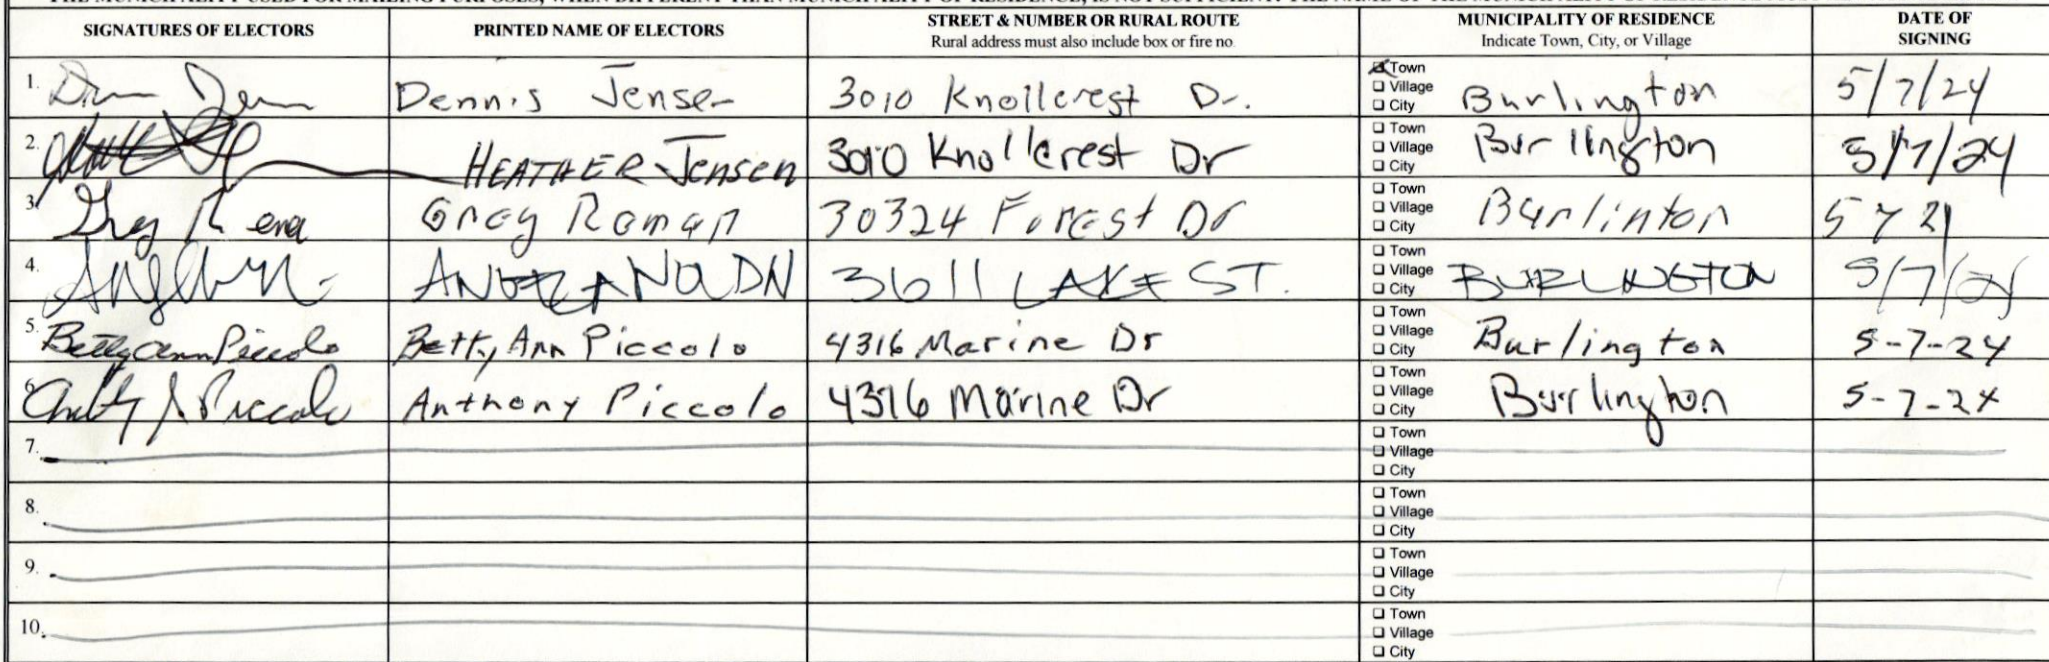 SIGNATURES OF ELECTORS PRINTED NAME OF ELECTORS STREET & NUMBER OR RURAL ROUTE MUNICIPALITY OF RESIDENCE DATE OF SIGNING
Rural address must also include box or fire no. Indicate Town, City, or Village
1. Dennis Jensen 3010 Knollcrest Dr. Town Village City Burlington 5/7/24
2. HEATHER Jensen 3010 Knollcrest Dr Town Village City Burlington 5/7/24
3. Greg Greg Roman 30324 Forest Dr Town Village City Burlinton 5 7 24
4. 3611 LAKE ST. Town Village City BURLINGTON 5/7/24
5. Betty Ann Piccolo Betty Ann Piccolo 4316 Marine Dr Town Village City Burlington 5-7-24
6. Anthony J Piccolo Anthony Piccolo 4316 Marine Dr Town Village City Burlington 5-7-24
7. Town Village City
8. Town Village City
9. Town Village City
10. Town Village City